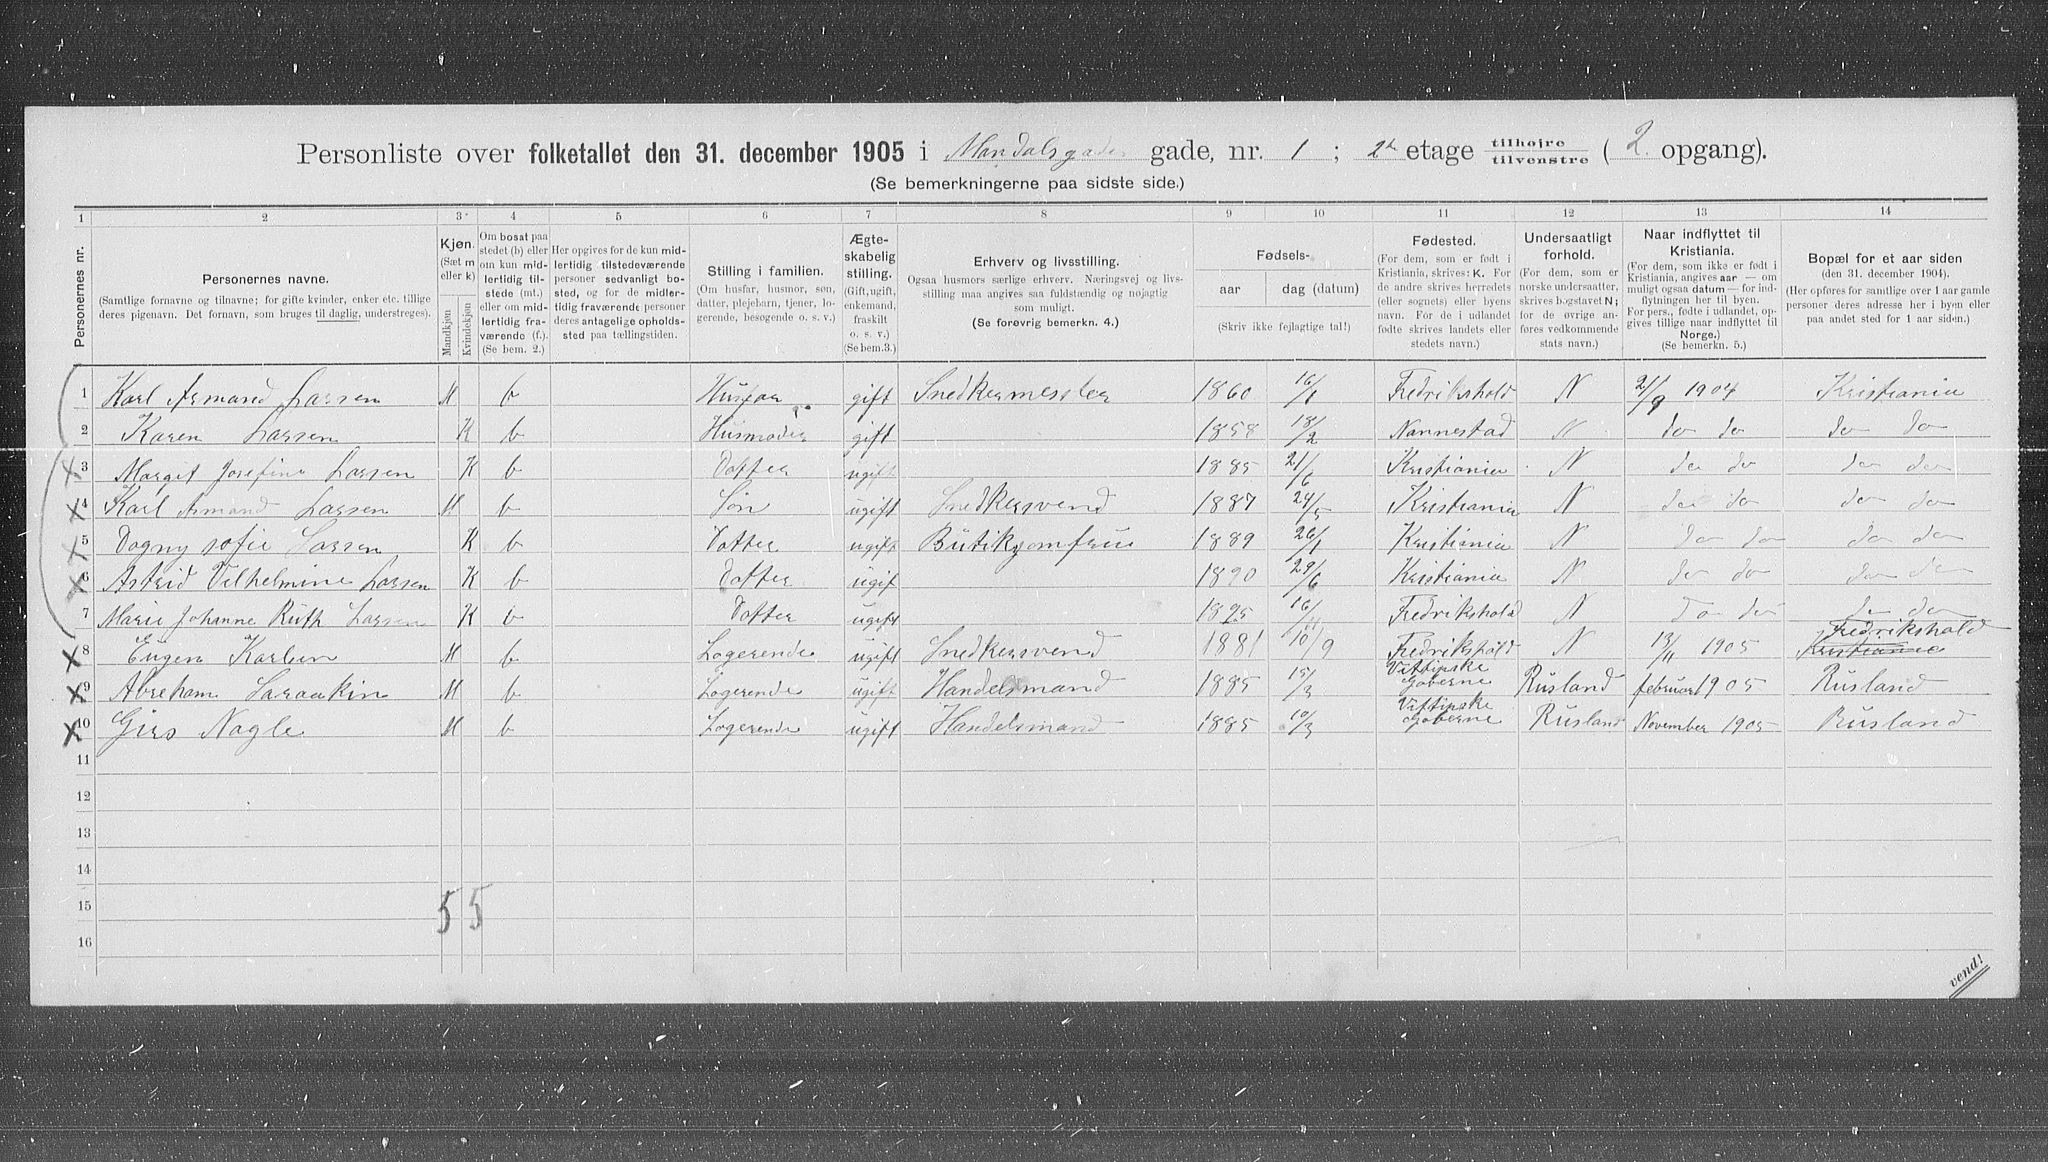 Personliste over folketallet den 31. december 1905 i Mandalsgaden gade, nr. 1 ; 2den etage tilhøjre tilvenstre ( 2. opgang).
(Se bemerkningerne paa sidste side.)
1 2 3 4 5 6 7 8 9 10 11 12 13 14
Personernes nr.
Personernes navne.
(Samtlige fornavne og tilnavne; for gifte kvinder, enker etc. tillige
deres pigenavn. Det fornavn, som bruges til daglig, understreges).
Kjøn.
(Sæt m
eller k)
Mandkjøn
Kvindekjøn
Om bosat paa
stedet (b) eller
om kun mid-
lertidig til-
stede (mt.)
eller om mid-
lertidig fra-
værende (f.).
(Se bem. 2.)
Her opgives for de kun mid-
lertidig tilstedeværende
personer sedvanligt bo-
sted, og for de midler-
tidig fraværende personer
deres antagelige opholds-
sted paa tællingstiden.
Stilling i familien.
(Om husfar, husmor, søn,
datter, plejebarn, tjener, lo-
gerende, besøgende o. s. v.)
Ægte-
skabelig
stilling.
(Gift, ugift,
enkemand,
fraskilt
o. s. v.)
(Se bem.3.)
Erhverv og livsstilling.
Ogsaa husmors særlige erhverv. Næringsvej og livs-
stilling maa angives saa fuldstændig og nøjagtig
som muligt.
(Se forøvrig bemerkn. 4.)
Fødsels-
aar dag (datum)
(Skriv ikke fejlagtige tal!)
Fødested.
(For dem, som er født i
Kristiania, skrives: K. For
de andre skrives herredets
(eller sognets) eller byens
navn. For de i udlandet
fødte skrives landets eller
stedets navn.)
Undersaatligt
forhold.
(For dem, som er
norske undersaatter,
skrives bogstavet N;
for de øvrige an-
føres vedkommende
stats navn.)
Naar indflyttet til
Kristiania.
(For dem, som ikke er født i
Kristiania, angives aar — om
muligt ogsaa datum — for ind-
flytningen her til byen.
For pers., fødte i udlandet, op-
gives tillige naar indflyttet til
Norge.)
(Se bemerkn. 5.)
Bopæl for et aar siden
(den 31. december 1904).
(Her opføres for samtlige over 1 aar gamle
personer deres adresse her i byen eller
paa andet sted for 1 aar siden.)
1 Karl Armand Larsen M b Husfar gift Snedkermester 1860 16/1 Fredrikshold N 21/9 1904 Kristiania
2 Karen Larsen K b Husmoder gift 1858 18/2 Nannestad N do do do do
3 Margit Josefine Larsen K b Datter ugift 1885 21/6 Kristiania N do do do do
4 Karl Armand Larsen M b Søn ugift Snedkersvend 1887 24/5 Kristiania N do do do do
5 Dagny sofie Larsen K b Datter ugift Butikjomfru 1889 26/1 Kristiania N do do do do
6 Astrid Vilhelmine Larsen K b Datter ugif 1890 29/6 Kristiania N do do do do
7 Marie Johanne Ruth Larsen K b Datter ugift 1895 16/11 Fredrikshold N do do do do
8 Eugen Karlsen M b Logerende ugift Snedkersvend 1881 10/9 Fredrikshold N 13/11 1905 Fredrikshald Kristiania
9 Abreham Saraakin M b Logerende ugift Handelsmand 1885 15/3 Vittipske Goberne Rusland februar 1905 Rusland
10 Girs Nagle M b Logerende ugift Handelsmand 1885 10/3 Vittipske Goberne Rusland November 1905 Rusland
11
12
13
14
15
16
5 5
vend!